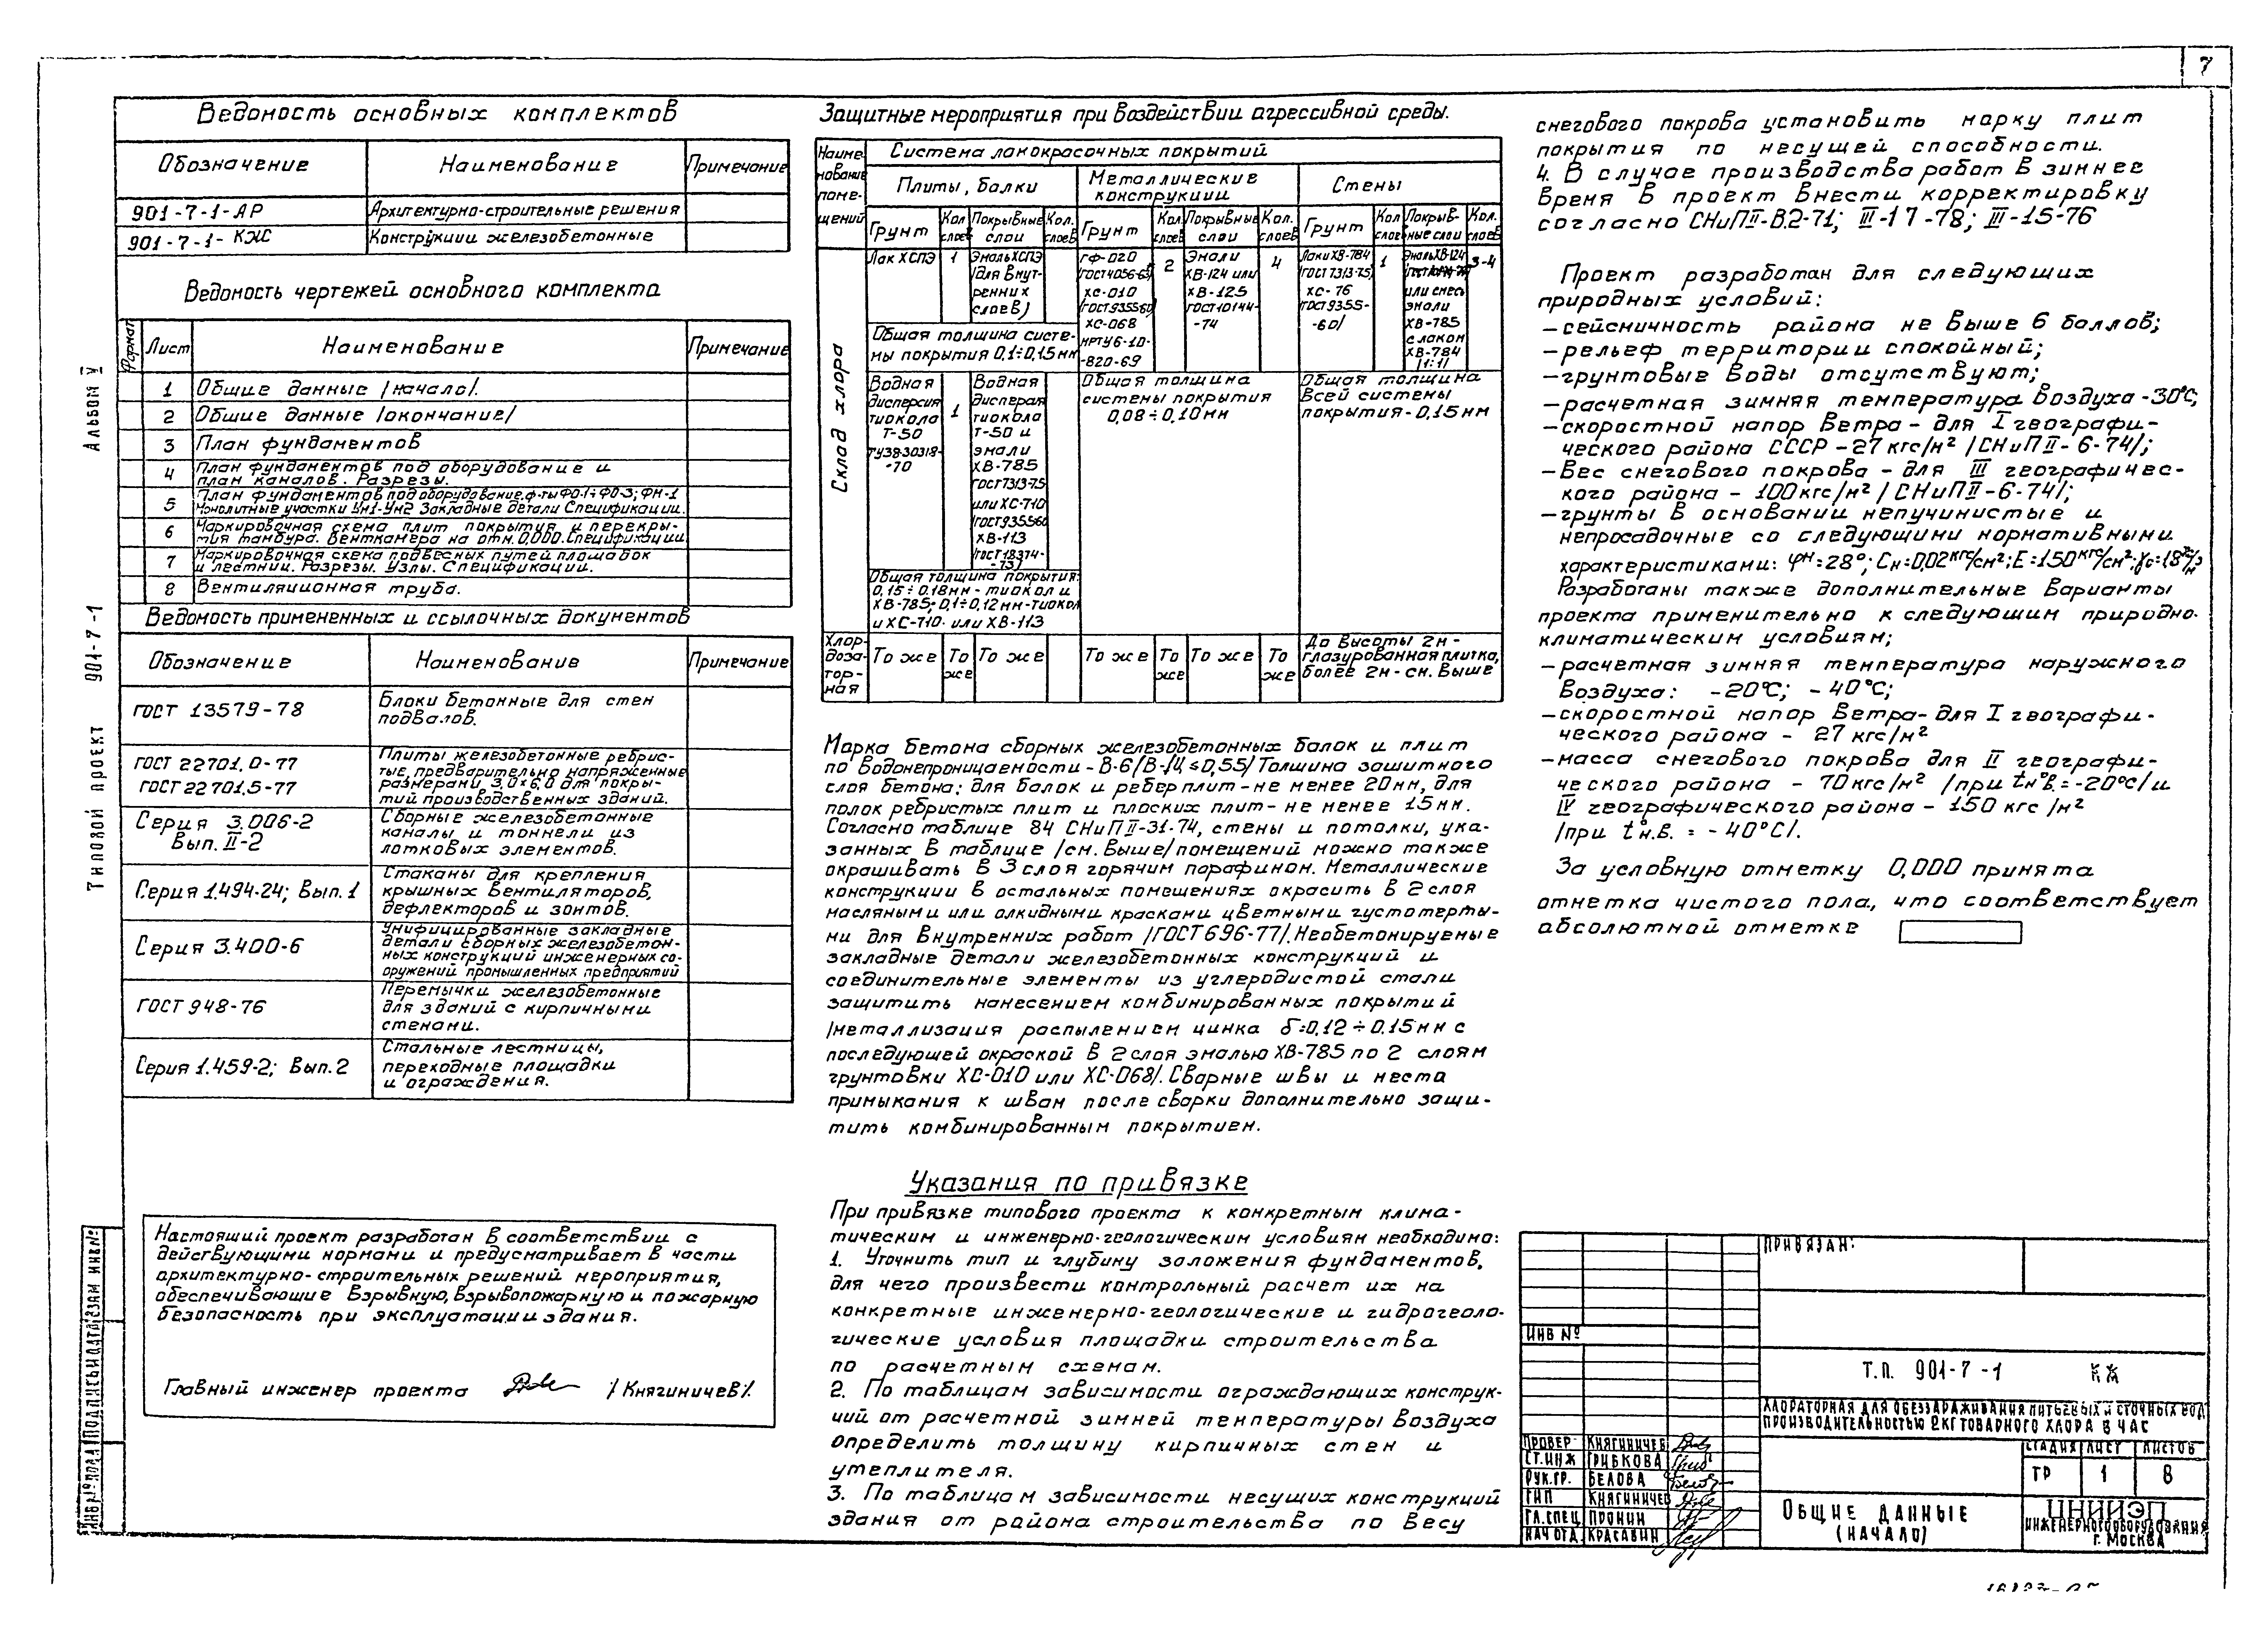 7
Ведомость основных комплектов
Обозначение Наименование Примечание
901-7-1-АР Архитектурно-строительные решения
901-7-1-КЖ Конструкции железобетонные
Ведомость чертежей основного комплекта
Формат Лист Наименование Примечание
1 Общие данные /начало/.
2 Общие данные /окончание/
3 План фундаментов
4 План фундаментов под оборудование и
план каналов. Разрезы.
5 План фундаментов под оборудование, ф-ты ФО-1÷ФО-3; ФМ-1
Монолитные участки Ум1-Ум2 Закладные детали Спецификации.
6 Маркировочная схема плит покрытия и перекры-
тия тамбура. Венткамера на отм. 0,000. Спецификации
7 Маркировочная схема подвесных путей площадок
и лестниц. Разрезы. Узлы. Спецификации.
8 Вентиляционная труба.
Ведомость примененных и ссылочных документов
Обозначение Наименование Примечание
ГОСТ 13579-78 Блоки бетонные для стен
подвалов.
ГОСТ 22701.0-77
ГОСТ 22701.5-77
Плиты железобетонные ребрис-
тые, предварительно напряженные
размерами 3,0×6,0 для покры-
тий производственных зданий.
Серия 3.006-2
Вып. II-2
Сборные железобетонные
каналы и тоннели из
лотковых элементов.
Серия 1.494-24; Вып. 1
Стаканы для крепления
крышных вентиляторов,
дефлекторов и зонтов.
Серия 3.400-6
Унифицированные закладные
детали сборных железобетон-
ных конструкций инженерных со-
оружений промышленных предприятий
ГОСТ 948-76
Перемычки железобетонные
для зданий с кирпичными
стенами.
Серия 1.459-2; Вып. 2
Стальные лестницы,
переходные площадки
и ограждения.
Настоящий проект разработан в соответствии с
действующими нормами и предусматривает в части
архитектурно-строительных решений мероприятия,
обеспечивающие взрывную, взрывопожарную и пожарную
безопасность при эксплуатации здания.
Главный инженер проекта /Княгиничев/.
Альбом V
Типовой проект 901-7-1
Защитные мероприятия при воздействии агрессивной среды.
Наиме-
нование
поме-
щений
Система лакокрасочных покрытий
Плиты, балки
Металлические
конструкции
Стены
Грунт Кол. слоев Покрывные слои Кол. слоев Грунт Кол. слоев Покрывные слои Кол. слоев Грунт Кол слоев Покрыв-ные слои Кол. слоев
Склад хлора
Лак ХСПЭ
1
Эмаль ХСПЭ
/для внут-
ренних
слоев/
Общая толщина систе-
мы покрытия 0,1÷0,15мм
ГФ-020
ГОСТ4056-63
ХС-010
/ГОСТ9355-60/
ХС-068
МРТУ6-10-
-820-69
2
Эмали
ХВ-124 или
ХВ-125
ГОСТ10144-
-74
4
Лаки ХВ-784
ГОСТ7313-75,
ХС-76
/ГОСТ9355-
-60/
1
Эмаль ХВ-124
или смесь
эмали
ХВ-785
с лаком
ХВ-784
/1:1/
3-4
Водная
дисперсия
тиокола
Т-50
ТУ38-30318-
-70
1
Водная
дисперсия
тиокола
Т-50 и
эмали
ХВ-785
ГОСТ7313-75
или ХС-710
/ГОСТ9355-60
ХВ-113
/ГОСТ18374-
-73/
Общая толщина покрытия:
0,15÷0,18мм-тиокол и
ХВ-785; 0,1÷0,12мм-тиокол
и ХС-710 или ХВ-113
Общая толщина
системы покрытия
0,08÷0,10мм
Общая толщина
всей системы
покрытия-0,15мм
Хлор-
доза-
тор-
ная
То же То же То же То же То же То же То же
До высоты 2м-
глазурованная плитка,
более 2м-см. выше
Марка бетона сборных железобетонных балок и плит
по водонепроницаемости-В-6/В/Ц≤0,55/Толщина защитного
слоя бетона: для балок и ребер плит-не менее 20мм, для
полок ребристых плит и плоских плит-не менее 15мм.
Согласно таблице 84 СНиП II-31-74, стены и потолки, ука-
занных в таблице /см. выше/ помещений можно также
окрашивать в 3 слоя горячим парафином. Металлические
конструкции в остальных помещениях окрасить в 2 слоя
масляными или алкидными красками цветными густотерты-
ми для внутренних работ /ГОСТ 696-77/. Необетонируемые
закладные детали железобетонных конструкций и
соединительные элементы из углеродистой стали
защитить нанесением комбинированных покрытий
/металлизация распылением цинка δ=0,12÷0,15мм с
последующей окраской в 2 слоя эмалью ХВ-785 по 2 слоям
грунтовки ХС-010 или ХС-068/. Сварные швы и места
примыкания к швам после сварки дополнительно защи-
тить комбинированным покрытием.
Указания по привязке
При привязке типового проекта к конкретным клима-
тическим и инженерно-геологическим условиям необходимо:
1. Уточнить тип и глубину заложения фундаментов,
для чего произвести контрольный расчет их на
конкретные инженерно-геологические и гидрогеоло-
гические условия площадки строительства
по расчетным схемам.
2. По таблицам зависимости ограждающих конструк-
ций от расчетной зимней температуры воздуха
определить толщину кирпичных стен и
утеплителя.
3. По таблицам зависимости несущих конструкций
здания от района строительства по весу
снегового покрова установить марку плит
покрытия по несущей способности.
4. В случае производства работ в зимнее
время в проект внести корректировку
согласно СНиП II-В.2-71; III-17-78; III-15-76
Проект разработан для следующих
природных условий:
-сейсмичность района не выше 6 баллов;
-рельеф территории спокойный;
-грунтовые воды отсутствуют;
-расчетная зимняя температура воздуха -30°С;
-скоростной напор ветра-для I географи-
ческого района СССР-27 кгс/м² /СНиП II-6-74/;
-вес снегового покрова-для III географичес-
кого района-100кгс/м² /СНиП II-6-74/;
-грунты в основании непучинистые и
непросадочные со следующими нормативными
характеристиками: φн=28°; Сн=0,02кгс/см²; Е=150кгс/см²; γо=1,8т/м³
Разработаны также дополнительные варианты
проекта применительно к следующим природно-
климатическим условиям;
-расчетная зимняя температура наружного
воздуха: -20°С; -40°С;
-скоростной напор ветра-для I географи-
ческого района - 27 кгс/м²
-масса снегового покрова для II географи-
ческого района - 70кгс/м² /при tн.в.=-20°С/ и
IV географического района - 150 кгс/м²
/при tн.в. = -40°С/.
За условную отметку 0,000 принята
отметка чистого пола, что соответствует
абсолютной отметке
ПРИВЯЗАН:
ИНВ №
Т.П. 901-7-1 КЖ
ХЛОРАТОРНАЯ ДЛЯ ОБЕЗЗАРАЖИВАНИЯ ПИТЬЕВЫХ И СТОЧНЫХ ВОД
ПРОИЗВОДИТЕЛЬНОСТЬЮ 2КГ ТОВАРНОГО ХЛОРА В ЧАС
ПРОВЕР. КНЯГИНИЧЕВ
СТ.ИНЖ ГРИБКОВА
РУК.ГР. БЕЛОВА
ГИП КНЯГИНИЧЕВ
ГЛ.СПЕЦ ПРОНИН
НАЧ ОТД КРАСАВИН
СТАДИЯ ЛИСТ ЛИСТОВ
ТР 1 8
ОБЩИЕ ДАННЫЕ
(НАЧАЛО)
ЦНИИЭП
ИНЖЕНЕРНОГО ОБОРУДОВАНИЯ
Г. МОСКВА
ИНВ № ПОДЛ ПОДПИСЬ И ДАТА ВЗАМ ИНВ №